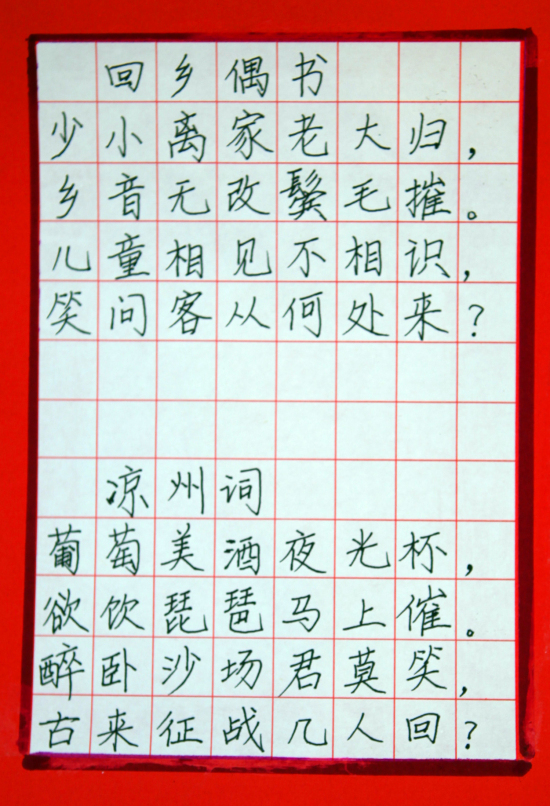 回乡偶书
少小离家老大归，
乡音无改鬓毛摧。
儿童相见不相识，
笑问客从何处来？
凉州词
葡萄美酒夜光杯，
欲饮琵琶马上催。
醉卧沙场君莫笑，
古来征战几人回？